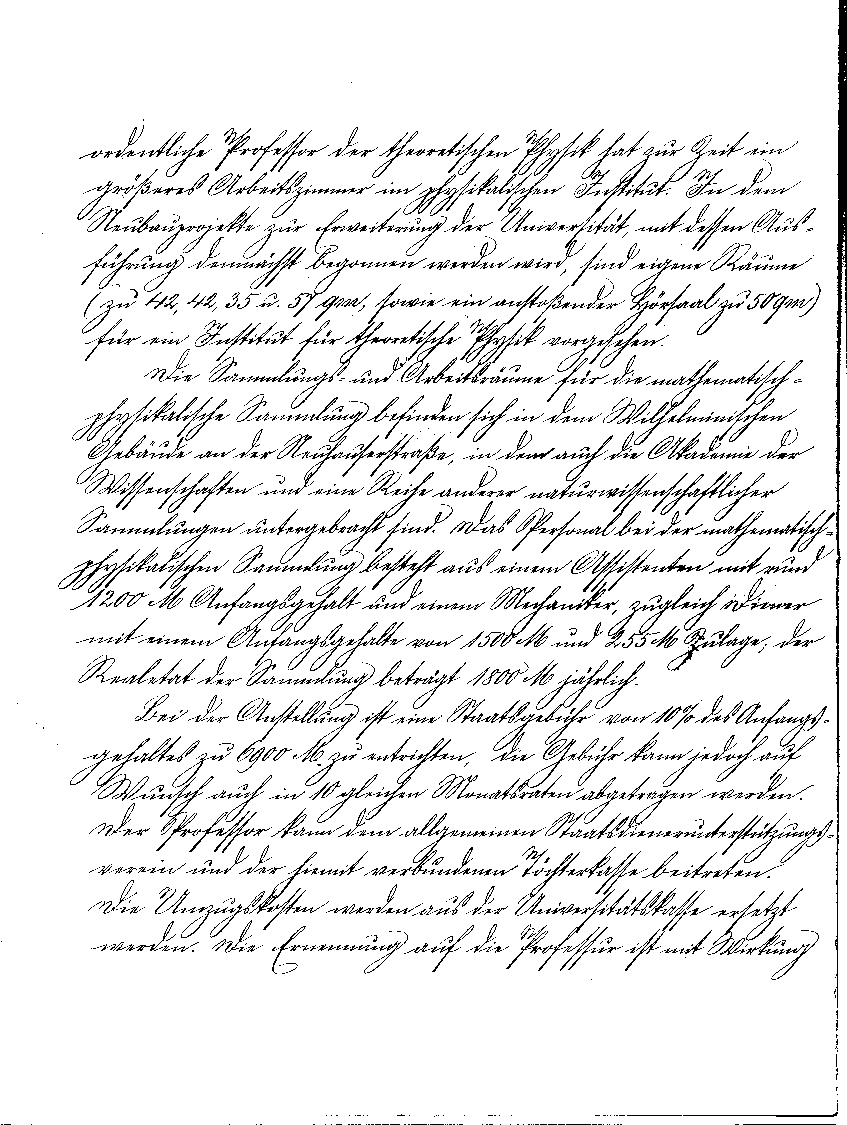 ordentliche Professor der theoretischen Physik hat zur Zeit ein
größeres Arbeitszimmer im physikalischen Institut. In dem
Neubauprojekte zur Erweiterung der Universität, mit dessen Aus-
führung demnächst begonnen werden wird, sind eigene Räume
(zu 42, 42, 35 u. 57 qm, sowie ein anstoßender Hörsaal zu 50 qm)
für ein Institut für theoretische Physik vorgesehen.
Die Sammlungs- und Arbeitsräume für die mathematisch-
physikalische Sammlung befinden sich in dem Wilhelminischen
Gebäude an der Neuhauserstraße, in dem auch die Akademie der
Wissenschaften und eine Reihe anderer naturwissenschaftlicher
Sammlungen untergebracht sind. Das Personal bei der mathematisch-
physikalischen Sammlung besteht aus einem Assistenten mit rund
1200 M Anfangsgehalt und einem Mechaniker, zugleich Diener
mit einem Anfangsgehalte von 1500 M und 255 M Zulage; der
Realetat der Sammlung beträgt 1800 M jährlich.
Bei der Anstellung ist eine Staatsgebühr von 10% des Anfangs-
gehaltes zu 6900 M. zu entrichten, die Gebühr kann jedoch auf
Wunsch auch in 10 gleichen Monatsraten abgetragen werden.
Der Professor kann dem allgemeinen Staatsdienerunterstützungs-
verein und der hiemit verbundenen Töchterkasse beitreten.
Die Umzugskosten werden aus der Universitätskasse ersetzt
werden. Die Ernennung auf die Professur ist mit Wirkung